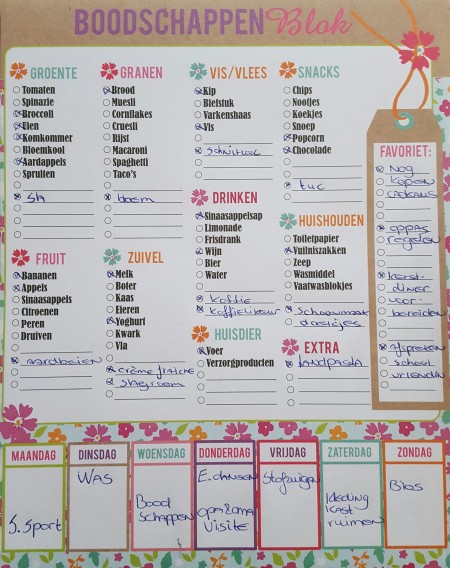 BOODSCHAPPEN Blok
GROENTE
Tomaten
Spinazie
Broccoli
Uien
Komkommer
Bloemkool
Aardappels
Spruiten
sla
GRANEN
Brood
Muesli
Cornflakes
Cruesli
Rijst
Macaroni
Spaghetti
Taco's
bloem
VIS/VLEES
Kip
Biefstuk
Varkenshaas
Vis
schnitzel
SNACKS
Chips
Nootjes
Koekjes
Snoep
Popcorn
Chocolade
tuc
FAVORIET:
Nog
kopen
cadeaus
oppas
regelen
kerst-
diner
voor-
bereiden
Afspreken
school
vriendin
DRINKEN
Sinaasappelsap
Limonade
Frisdrank
Wijn
Bier
Water
koffie
koffielikeur
HUISHOUDEN
Toiletpapier
Vuilniszakken
Zeep
Wasmiddel
Vaatwasblokjes
schoonmaak
doekjes
FRUIT
Bananen
Appels
Sinaasappels
Citroenen
Peren
Druiven
aardbeien
ZUIVEL
Melk
Boter
Kaas
Eieren
Yoghurt
Kwark
Vla
crème fraîche
slagroom
HUISDIER
Voer
Verzorgproducten
EXTRA
TANDPASTA
MAANDAG
S. Sport
DINSDAG
WAS
WOENSDAG
Bood
schappen
DONDERDAG
E. dansen
opa&oma
Visite
VRIJDAG
Stofzuigen
ZATERDAG
kleding
kast
ruimen
ZONDAG
Bios